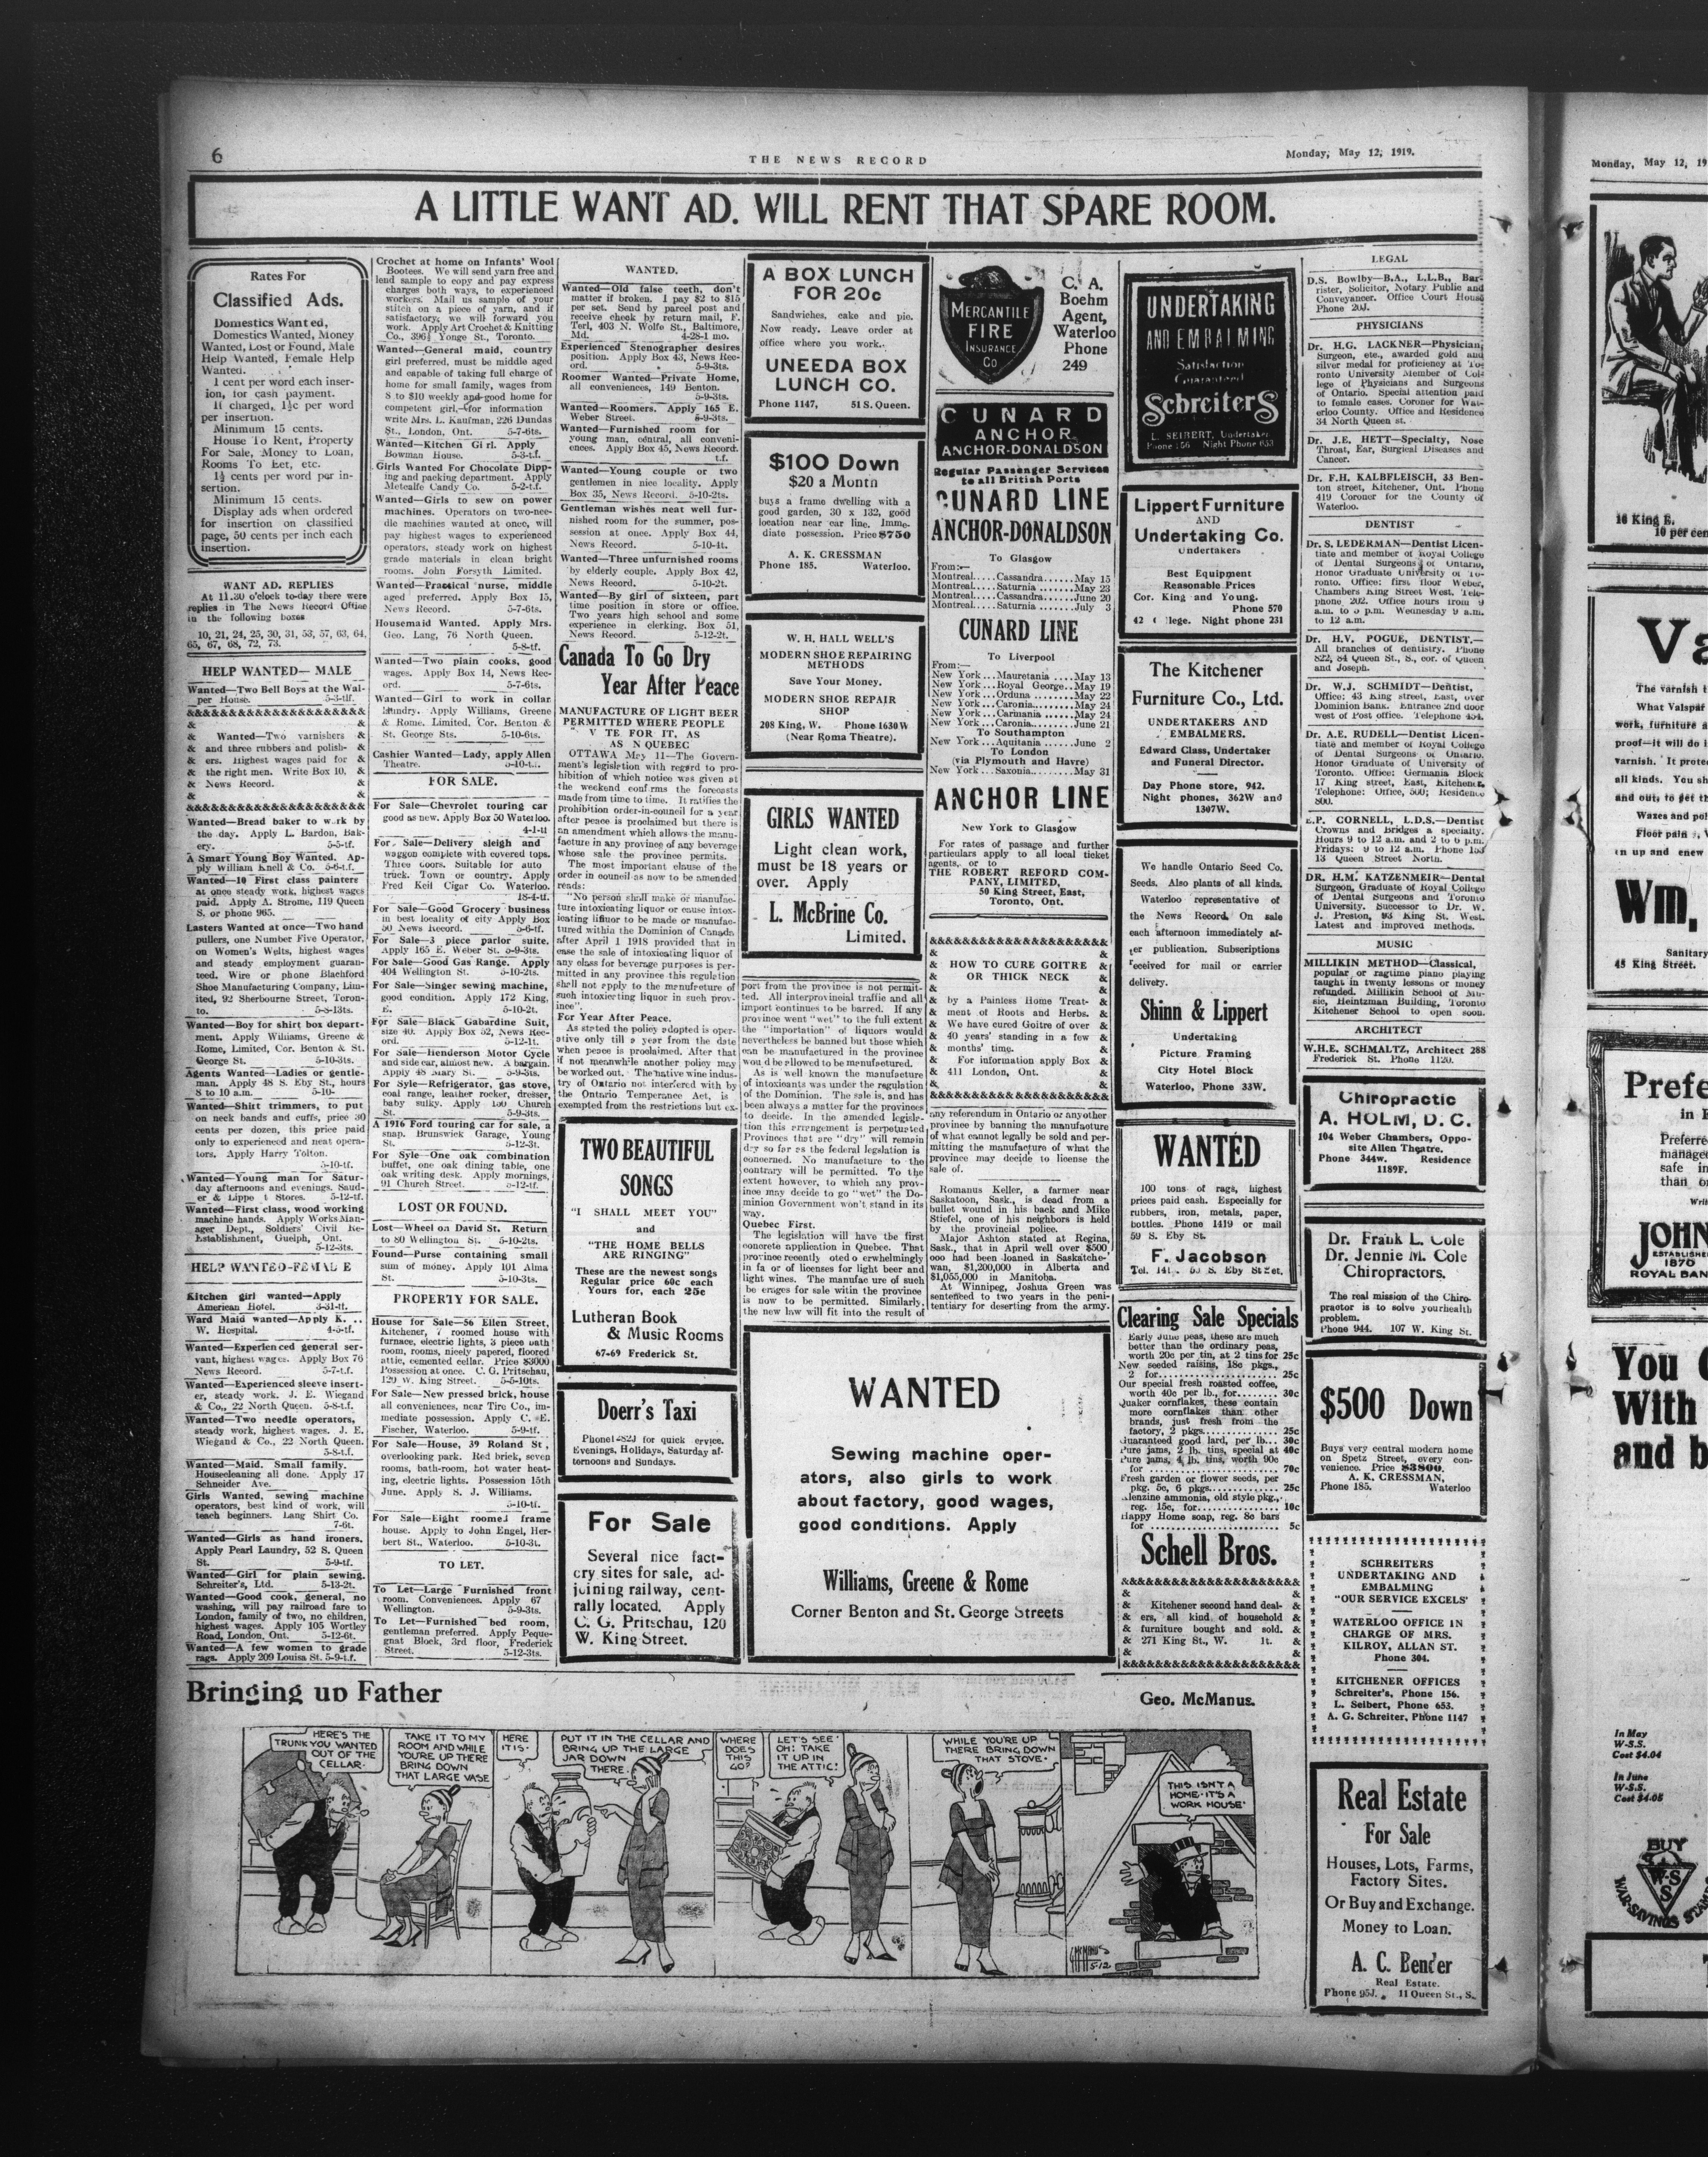 6
THE NEWS RECORD
Monday, May 12, 1919.
A LITTLE WANT AD. WILL RENT THAT SPARE ROOM.
Rates For
Classified Ads.
Domestics Wanted,
Domestics Wanted, Money
Wanted, Lost or Found, Male
Help Wanted, Female Help
Wanted.
1 cent per word each inser-
ion, for cash payment.
If charged, 1½c per word
per insertion.
Minimum 15 cents.
House To Rent, Property
For Sale, Money to Loan,
Rooms To Let, etc.
1½ cents per word per in-
sertion.
Minimum 15 cents.
Display ads when ordered
for insertion on classified
page, 50 cents per inch each
insertion.
WANT AD. REPLIES
At 11.30 o'clock to-day there were
replies in The News Record Office
in the following boxes
10, 21, 24, 25, 30, 31, 53, 57, 63, 64,
65, 67, 68, 72, 73.
HELP WANTED—MALE
Wanted—Two Bell Boys at the Wal-
per House. 5-3-tf.
Wanted—Two varnishers
and three rubbers and polish-
ers. Highest wages paid for
the right men. Write Box 10,
News Record.
Wanted—Bread baker to work by
the day. Apply L. Bardon, Bak-
ery. 5-5-tf.
A Smart Young Boy Wanted. Ap-
ply William Knell & Co. 5-6-t.f.
Wanted—10 First class painters
at once steady work, highest wages
paid. Apply A. Strome, 119 Queen
S. or phone 965.
Lasters Wanted at once—Two hand
pullers, one Number Five Operator,
on Women's Welts, highest wages
and steady employment guaran-
teed. Wire or phone Blachford
Shoe Manufacturing Company, Lim-
ited, 92 Sherbourne Street, Toron-
to. 5-8-13ts.
Wanted—Boy for shirt box depart-
ment. Apply Williams, Greene &
Rome, Limited, Cor. Benton & St.
George St. 5-10-3ts.
Agents Wanted—Ladies or gentle-
man. Apply 48 S. Eby St., hours
8 to 10 a.m. 5-10-
Wanted—Shirt trimmers, to put
on neck bands and cuffs, price 30
cents per dozen, this price paid
only to experienced and neat opera-
tors. Apply Harry Tolton.
5-10-tf.
Wanted—Young man for Satur-
day afternoons and evenings. Saud-
er & Lippe t Stores. 5-12-tf.
Wanted—First class, wood working
machine hands. Apply Works Man-
ager Dept., Soldiers' Civil Re-
Establishment, Guelph, Ont.
5-12-3ts.
HELP WANTED-FEMALE
Kitchen girl wanted—Apply
American Hotel. 3-31-tf.
Ward Maid wanted—Apply K. ..
W. Hospital. 4-5-tf.
Wanted—Experienced general ser-
vant, highest wages. Apply Box 76
News Record. 5-7-t.f.
Wanted—Experienced sleeve insert-
er, steady work. J. E. Wiegand
& Co., 22 North Queen. 5-8-t.f.
Wanted—Two needle operators,
steady work, highest wages. J. E.
Wiegand & Co., 22 North Queen.
5-8-t.f.
Wanted—Maid. Small family.
Housecleaning all done. Apply 17
Schneider Ave.
Girls Wanted, sewing machine
operators, best kind of work, will
teach beginners. Lang Shirt Co.
7-6t.
Wanted—Girls as hand ironers.
Apply Pearl Laundry, 52 S. Queen
St. 5-9-tf.
Wanted—Girl for plain sewing.
Schreiter's, Ltd. 5-13-2t.
Wanted—Good cook, general, no
washing, will pay railroad fare to
London, family of two, no children,
highest wages. Apply 105 Wortley
Road, London, Ont. 5-12-6t.
Wanted—A few women to grade
rags. Apply 209 Louisa St. 5-9-t.f.
Crochet at home on Infants' Wool
Bootees. We will send yarn free and
lend sample to copy and pay express
charges both ways, to experienced
workers. Mail us sample of your
stitch on a piece of yarn, and if
satisfactory we will forward you
work. Apply Art Crochet & Knitting
Co., 396½ Yonge St., Toronto.
Wanted—General maid, country
girl preferred, must be middle aged
and capable of taking full charge of
home for small family, wages from
8 to $10 weekly and good home for
competent girl,—for information
write Mrs. L. Kaufman, 226 Dundas
St., London, Ont. 5-7-6ts.
Wanted—Kitchen Girl. Apply
Bowman House. 5-3-t.f.
Girls Wanted For Chocolate Dipp-
ing and packing department. Apply
Metcalfe Candy Co. 5-2-t.f.
Wanted—Girls to sew on power
machines. Operators on two-nee-
dle machines wanted at once, will
pay highest wages to experienced
operators, steady work on highest
grade materials in clean bright
rooms. John Forsyth Limited.
Wanted—Practical nurse, middle
aged preferred. Apply Box 15,
News Record. 5-7-6ts.
Housemaid Wanted. Apply Mrs.
Geo. Lang, 76 North Queen.
5-8-tf.
Wanted—Two plain cooks, good
wages. Apply Box 14, News Rec-
ord. 5-7-6ts.
Wanted—Girl to work in collar
laundry. Apply Williams, Greene
& Rome. Limited, Cor. Benton &
St. George Sts. 5-10-6ts.
Cashier Wanted—Lady, apply Allen
Theatre.
FOR SALE.
For Sale—Chevrolet touring car
good as new. Apply Box 50 Waterloo.
4-1-tf
For Sale—Delivery sleigh and
waggon complete with covered tops.
Three doors. Suitable for auto
truck. Town or country. Apply
Fred Keil Cigar Co. Waterloo.
18-4-tf.
For Sale—Good Grocery business
in best locality of city Apply Box
50 News Record. 5-6-tf.
For Sale—3 piece parlor suite.
Apply 165 E. Weber St. 5-9-3ts.
For Sale—Good Gas Range. Apply
404 Wellington St. 5-10-2ts.
For Sale—Singer sewing machine,
good condition. Apply 172 King,
E. 5-10-2t.
For Sale—Black Gabardine Suit,
size 40. Apply Box 52, News Rec-
ord. 5-12-1t.
For Sale—Henderson Motor Cycle
and side car, almost new. A bargain.
Apply 48 Mary St. 5-9-3ts.
For Syle—Refrigerator, gas stove,
coal range, leather rocker, dresser,
baby sulky. Apply 150 Church
St. 5-9-3ts.
A 1916 Ford touring car for sale, a
snap. Brunswick Garage, Young
St. 5-12-3t.
For Syle—One oak combination
buffet, one oak dining table, one
oak writing desk. Apply mornings,
91 Church Street. 5-12-tf.
LOST OR FOUND.
Lost—Wheel on David St. Return
to 80 Wellington St. 5-10-2ts.
Found—Purse containing small
sum of money. Apply 101 Alma
St. 5-10-3ts.
PROPERTY FOR SALE.
House for Sale—56 Ellen Street,
Kitchener, 7 roomed house with
furnace, electric lights, 3 piece bath
room, rooms, nicely papered, floored
attic, cemented cellar. Price $3000
Possession at once. C. G. Pritschau,
120 W. King Street. 5-5-10ts.
For Sale—New pressed brick, house
all conveniences, near Tire Co., im-
mediate possession. Apply C. E.
Fischer, Waterloo. 5-9-tf.
For Sale—House, 39 Roland St,
overlooking park. Red brick, seven
rooms, bath-room, hot water heat-
ing, electric lights. Possession 15th
June. Apply S. J. Williams.
5-10-tf.
For Sale—Eight roomed frame
house. Apply to John Engel, Her-
bert St., Waterloo. 5-10-3t.
TO LET.
To Let—Large Furnished front
room. Conveniences. Apply 67
Wellington. 5-9-3ts.
To Let—Furnished bed room,
gentleman preferred. Apply Peque-
gnat Block, 3rd floor, Frederick
Street. 5-12-3ts.
WANTED.
Wanted—Old false teeth, don't
matter if broken. I pay $2 to $15
per set. Send by parcel post and
receive check by return mail, F.
Terl, 403 N. Wolfe St., Baltimore,
Md. 4-28-1 mo.
Experienced Stenographer desires
position. Apply Box 43, News Rec-
ord. 5-9-3ts.
Roomer Wanted—Private Home,
all conveniences, 149 Benton.
5-9-3ts.
Wanted—Roomers. Apply 165 E.
Weber Street. 5-9-3ts.
Wanted—Furnished room for
young man, central, all conveni-
ences. Apply Box 45, News Record.
t.f.
Wanted—Young couple or two
gentlemen in nice locality. Apply
Box 35, News Record. 5-10-2ts.
Gentleman wishes neat well fur-
nished room for the summer, pos-
session at once. Apply Box 44,
News Record. 5-10-4t.
Wanted—Three unfurnished rooms
by elderly couple. Apply Box 42,
News Record. 5-10-2t.
Wanted—By girl of sixteen, part
time position in store or office.
Two years high school and some
experience in clerking. Box 51,
News Record. 5-12-2t.
Canada To Go Dry
Year After Peace
MANUFACTURE OF LIGHT BEER
PERMITTED WHERE PEOPLE
V TE FOR IT, AS
AS N QUEBEC
OTTAWA May 11—The Govern-
ment's legislation with regard to pro-
hibition of which notice was given at
the weekend confirms the forecasts
made from time to time. It ratifies the
prohibition order-in-council for a year
after peace is proclaimed but there is
an amendment which allows the manu-
facture in any province of any beverage
whose sale the province permits.
The most important clause of the
order in council as now to be amended
reads:
"No person shall make or manufac-
ture intoxicating liquor or cause intox-
icating liquor to be made or manufac-
tured within the Dominion of Canada,
after April 1 1918 provided that in
case the sale of intoxicating liquor of
any class for beverage purposes is per-
mitted in any province this regulation
shall not apply to the manufacture of
such intoxicating liquor in such prov-
ince".
For Year After Peace.
As stated the policy adopted is oper-
ative only till a year from the date
when peace is proclaimed. After that
if not meanwhile another policy may
be worked out. The native wine indus-
try of Ontario not interfered with by
the Ontario Temperance Act, is
exempted from the restrictions but ex-
TWO BEAUTIFUL
SONGS
"I SHALL MEET YOU"
and
"THE HOME BELLS
ARE RINGING"
These are the newest songs
Regular price 60c each
Yours for, each 25c
Lutheran Book
& Music Rooms
67-69 Frederick St.
Doerr's Taxi
Phone for quick ervice.
Evenings, Holidays, Saturday af-
ternoons and Sundays.
For Sale
Several nice fact-
cry sites for sale, ad-
joining railway, cent-
rally located. Apply
C. G. Pritschau, 120
W. King Street.
A BOX LUNCH
FOR 20c
Sandwiches, cake and pie.
Now ready. Leave order at
office where you work.
UNEEDA BOX
LUNCH CO.
Phone 1147, 51 S. Queen.
$100 Down
$20 a Month
buys a frame dwelling with a
good garden, 30 x 132, good
location near car line. Imme-
diate possession. Price $750
A. K. CRESSMAN
Phone 185. Waterloo.
W. H. HALL WELL'S
MODERN SHOE REPAIRING
METHODS
Save Your Money.
MODERN SHOE REPAIR
SHOP
208 King, W. Phone 1630W
(Near Roma Theatre).
GIRLS WANTED
Light clean work,
must be 18 years or
over. Apply
L. McBrine Co.
Limited.
port from the province is not permit-
ted. All interprovincial traffic and all
import continues to be barred. If any
province went "wet" to the full extent
the "importation" of liquors would
nevertheless be banned but those which
can be manufactured in the province
would be allowed to be manufactured.
As is well known the manufacture
of intoxicants was under the regulation
of the Dominion. The sale is, and has
been always a matter for the provinces
to decide. In the amended legisla-
tion this arrangement is perpetuated
Provinces that are "dry" will remain
dry so far as the federal legslation is
concerned. No manufacture to the
contrary will be permitted. To the
extent however, to which any prov-
ince may decide to go "wet" the Do-
minion Government won't stand in its
way.
Quebec First.
The legislation will have the first
concrete application in Quebec. That
province recently oted o erwhelmingly
in fa or of licenses for light beer and
light wines. The manufac ure of such
be erages for sale witin the province
is now to be permitted. Similarly,
the new law will fit into the result of
MERCANTILE
FIRE
INSURANCE
CO
C. A.
Boehm
Agent,
Waterloo
Phone
249
CUNARD
ANCHOR
ANCHOR-DONALDSON
Regular Passenger Services
to all British Ports
CUNARD LINE
ANCHOR-DONALDSON
To Glasgow
From:—
Montreal.....Cassandra......May 15
Montreal.....Saturnia......May 23
Montreal.....Cassandra......June 20
Montreal.....Saturnia......July 3
CUNARD LINE
To Liverpool
From:—
New York...Mauretania....May 13
New York...Royal George..May 19
New York...Orduna.......May 22
New York...Caronia......May 24
New York...Carmania.....May 24
New York...Caronia......June 21
To Southampton
New York...Aquitania......June 2
To London
(via Plymouth and Havre)
New York...Saxonia......May 31
ANCHOR LINE
New York to Glasgow
For rates of passage and further
particulars apply to all local ticket
agents, or to
THE ROBERT REFORD COM-
PANY, LIMITED,
50 King Street, East,
Toronto, Ont.
HOW TO CURE GOITRE
OR THICK NECK
by a Painless Home Treat-
ment of Roots and Herbs.
We have cured Goitre of over
40 years' standing in a few
months' time.
For information apply Box
411 London, Ont.
any referendum in Ontario or any other
province by banning the manufacture
of what cannot legally be sold and per-
mitting the manufacture of what the
province may decide to license the
sale of.
Romanus Keller, a farmer near
Saskatoon, Sask., is dead from a
bullet wound in his back and Mike
Stiefel, one of his neighbors is held
by the provincial police.
Major Ashton stated at Regina,
Sask., that in April well over $500
000 had been loaned in Saskatche-
wan, $1,200,000 in Alberta and
$1,055,000 in Manitoba.
At Winnipeg, Joshua Green was
sentenced to two years in the peni-
tentiary for deserting from the army.
WANTED
Sewing machine oper-
ators, also girls to work
about factory, good wages,
good conditions. Apply
Williams, Greene & Rome
Corner Benton and St. George Streets
UNDERTAKING
AND EMBALMING
Satisfaction
Guaranteed
SchreiterS
L. SEIBERT, Undertaker
Phone 156 Night Phone 653
Lippert Furniture
AND
Undertaking Co.
Undertakers
Best Equipment
Reasonable Prices
Cor. King and Young.
Phone 570
42 C llege. Night phone 231
The Kitchener
Furniture Co., Ltd.
UNDERTAKERS AND
EMBALMERS.
Edward Glass, Undertaker
and Funeral Director.
Day Phone store, 942.
Night phones, 362W and
1307W.
We handle Ontario Seed Co.
Seeds. Also plants of all kinds.
Waterloo representative of
the News Record. On sale
each afternoon immediately af-
ter publication. Subscriptions
received for mail or carrier
delivery.
Shinn & Lippert
Undertaking
Picture Framing
City Hotel Block
Waterloo, Phone 33W.
WANTED
100 tons of rags, highest
prices paid cash. Especially for
rubbers, iron, metals, paper,
bottles. Phone 1419 or mail
59 S. Eby St.
F. Jacobson
Tel. S. Eby Street.
Clearing Sale Specials
Early June peas, these are much
better than the ordinary peas,
worth 20c per tin, at 2 tins for 25c
New seeded raisins, 18c pkgs.,
2 for................... 25c
Our special fresh roasted coffee,
worth 40c per lb., for........ 30c
Quaker cornflakes, these contain
more cornflakes than other
brands, just fresh from the
factory, 2 pkgs............. 25c
Guaranteed good lard, per lb... 30c
Pure jams, 2 lb. tins, special at 40c
Pure jams, 4 lb. tins, worth 90c
for ....................... 70c
Fresh garden or flower seeds, per
pkg. 5c, 6 pkgs............. 25c
lenzine ammonia, old style pkg.,
reg. 15c, for............... 10c
Happy Home soap, reg. 8c bars
for ....................... 5c
Schell Bros.
Kitchener second hand deal-
ers, all kind of household
furniture bought and sold.
271 King St., W. 1t.
LEGAL
D.S. Bowlby—B.A., L.L.B., Bar-
rister, Solicitor, Notary Public and
Conveyancer. Office Court House
Phone 20J.
PHYSICIANS
Dr. H.G. LACKNER—Physician,
Surgeon, etc., awarded gold and
silver medal for proficiency at To-
ronto University Member of Col-
lege of Physicians and Surgeons
of Ontario. Special attention paid
to female cases. Coroner for Wat-
erloo County. Office and Residence
34 North Queen st.
Dr. J.E. HETT—Specialty, Nose
Throat, Ear, Surgical Diseases and
Cancer.
Dr. F.H. KALBFLEISCH, 33 Ben-
ton street, Kitchener, Ont. Phone
419 Coroner for the County of
Waterloo.
DENTIST
Dr. S. LEDERMAN—Dentist Licen-
tiate and member of Royal College
of Dental Surgeons of Ontario,
Honor Graduate University of To-
ronto. Office: first floor Weber,
Chambers King Street West. Tele-
phone 202. Office hours from 9
a.m. to 5 p.m. Wednesday 9 a.m.
to 12 a.m.
Dr. H.V. POGUE, DENTIST.—
All branches of dentistry. Phone
822, 84 Queen St., S., cor. of Queen
and Joseph.
Dr. W.J. SCHMIDT—Dentist,
Office: 43 King street, East, over
Dominion Bank. Entrance 2nd door
west of Post office. Telephone 454.
Dr. A.E. RUDELL—Dentist Licen-
tiate and member of Royal College
of Dental Surgeons of Ontario.
Honor Graduate of University of
Toronto. Office: Germania Block
17 King street, East, Kitchener,
Telephone: Office, 500; Residence
800.
E.P. CORNELL, L.D.S.—Dentist
Crowns and Bridges a specialty.
Hours 9 to 12 a.m. and 2 to 6 p.m.
Fridays: 9 to 12 a.m. Phone 153
13 Queen Street North.
DR. H.M. KATZENMEIR—Dental
Surgeon, Graduate of Royal College
of Dental Surgeons and Toronto
University. Successor to Dr. W.
J. Preston, 93 King St. West.
Latest and improved methods.
MUSIC
MILLIKIN METHOD—Classical,
popular or ragtime piano playing
taught in twenty lessons or money
refunded. Millikin School of Mu-
sic, Heintzman Building, Toronto
Kitchener School to open soon.
ARCHITECT
W.H.E. SCHMALTZ, Architect 288
Frederick St. Phone 1120.
Chiropractic
A. HOLM, D. C.
104 Weber Chambers, Oppo-
site Allen Theatre.
Phone 344w. Residence
1189F.
Dr. Frank L. Cole
Dr. Jennie M. Cole
Chiropractors.
The real mission of the Chiro-
practor is to solve your health
problem.
Phone 944. 107 W. King St.
$500 Down
Buys very central modern home
on Spetz Street, every con-
venience. Price $3800.
A. K. CRESSMAN,
Phone 185. Waterloo
SCHREITERS
UNDERTAKING AND
EMBALMING
"OUR SERVICE EXCELS'
WATERLOO OFFICE IN
CHARGE OF MRS.
KILROY, ALLAN ST.
Phone 304.
KITCHENER OFFICES
Schreiter's, Phone 156.
L. Seibert, Phone 653.
A. G. Schreiter, Phone 1147
Real Estate
For Sale
Houses, Lots, Farms,
Factory Sites.
Or Buy and Exchange.
Money to Loan.
A. C. Bender
Real Estate.
Phone 95J. 11 Queen St., S.
Bringing up Father
Geo. McManus.
HERE'S THE
TRUNK YOU WANTED
OUT OF THE
CELLAR.
TAKE IT TO MY
ROOM AND WHILE
YOU'RE UP THERE
BRING DOWN
THAT LARGE VASE
HERE
IT IS.
PUT IT IN THE CELLAR AND
BRING UP THE LARGE
JAR DOWN
THERE.
WHERE
DOES
THIS
GO?
LET'S SEE
OH: TAKE
IT UP IN
THE ATTIC!
WHILE YOU'RE UP
THERE BRING DOWN
THAT STOVE.
THIS ISN'T A
HOME-IT'S A
WORK HOUSE
McMANUS
5-12
Monday, May 12, 19
16 King E.
10 per cen
Va
The varnish t
What Valspar
work, furniture a
proof—it will do i
varnish. It prote
all kinds. You sh
and out, to get th
Waxes and pol
Floor pain
in up and enew
Wm.
Sanitary
45 King Street.
Prefe
in
Preferre
managed
safe in
than o
Wri
JOHN
ESTABLISHED
1870
ROYAL BAN
You
With
and b
In May
W-S.S.
Cost $4.04
In June
W-S.S.
Cost $4.05
BUY
W-S.S.
WAR-SAVINGS STAM